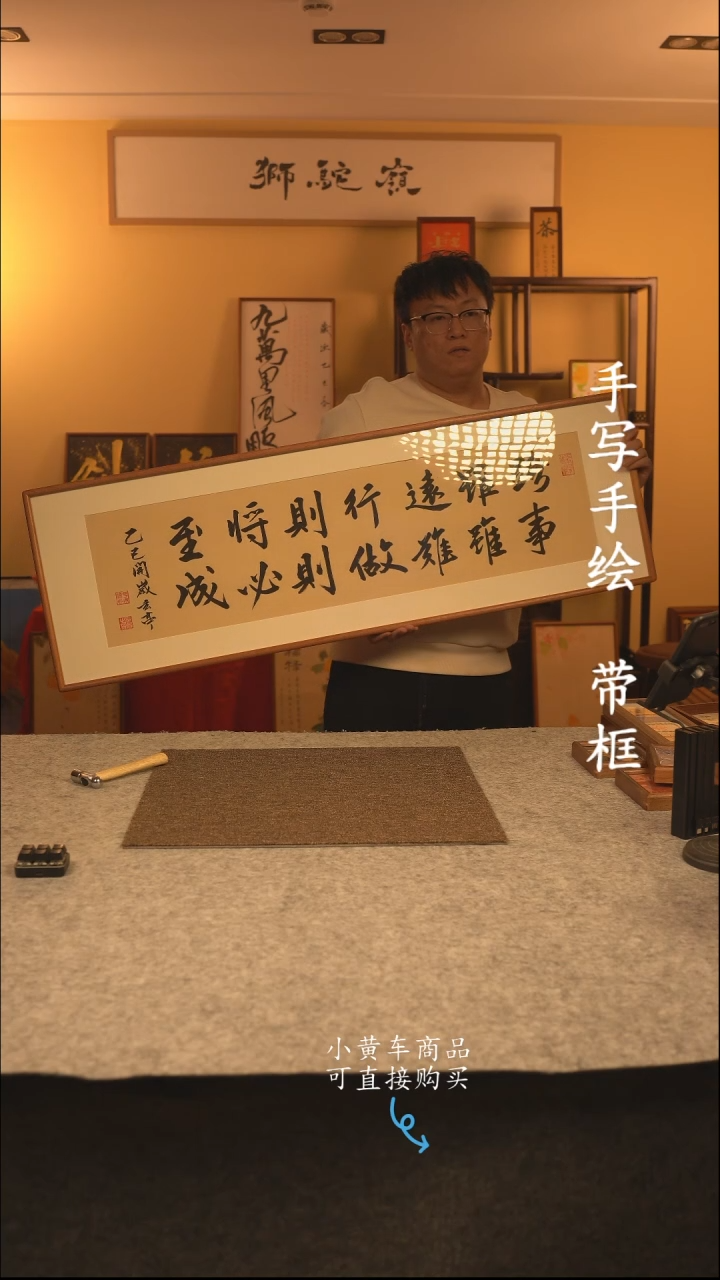 獅駝
茶
九萬里風
路雖遠行則將至
事雖難做則必成
乙巳開歲云亭
手写手绘 带框
小黄车商品
可直接购买